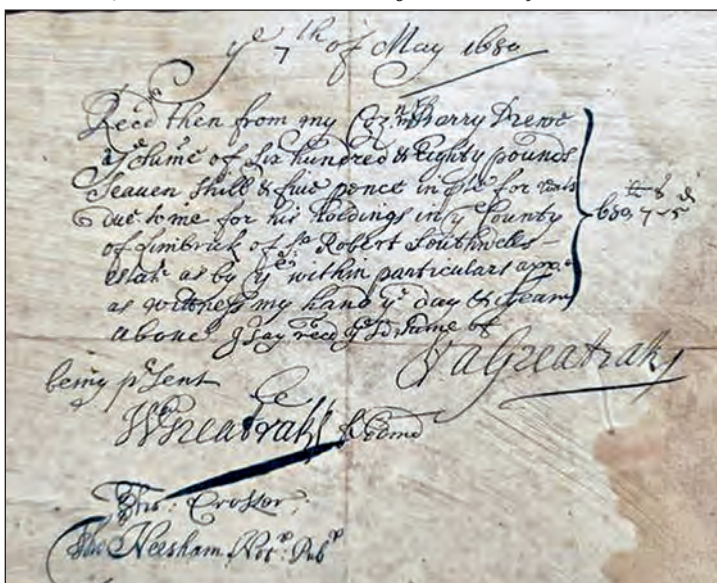 ye 7th of May 1680
Recd then from my Coz:n Barry Drewe
ye sume of six hundred & Eighty pounds
Seaven shill & five pence in for rents
due to me for his holdings in ye County
of Limbrick of Sr Robert Southwells
estate as by ye within particulars
as wittness my hand ye day & yeare
above I say recd ye sd sume of
680, 7 - 5
Va Greatraks
being psent
W Greatraks
Tho: Croker
Tho Neesham Not: Pub